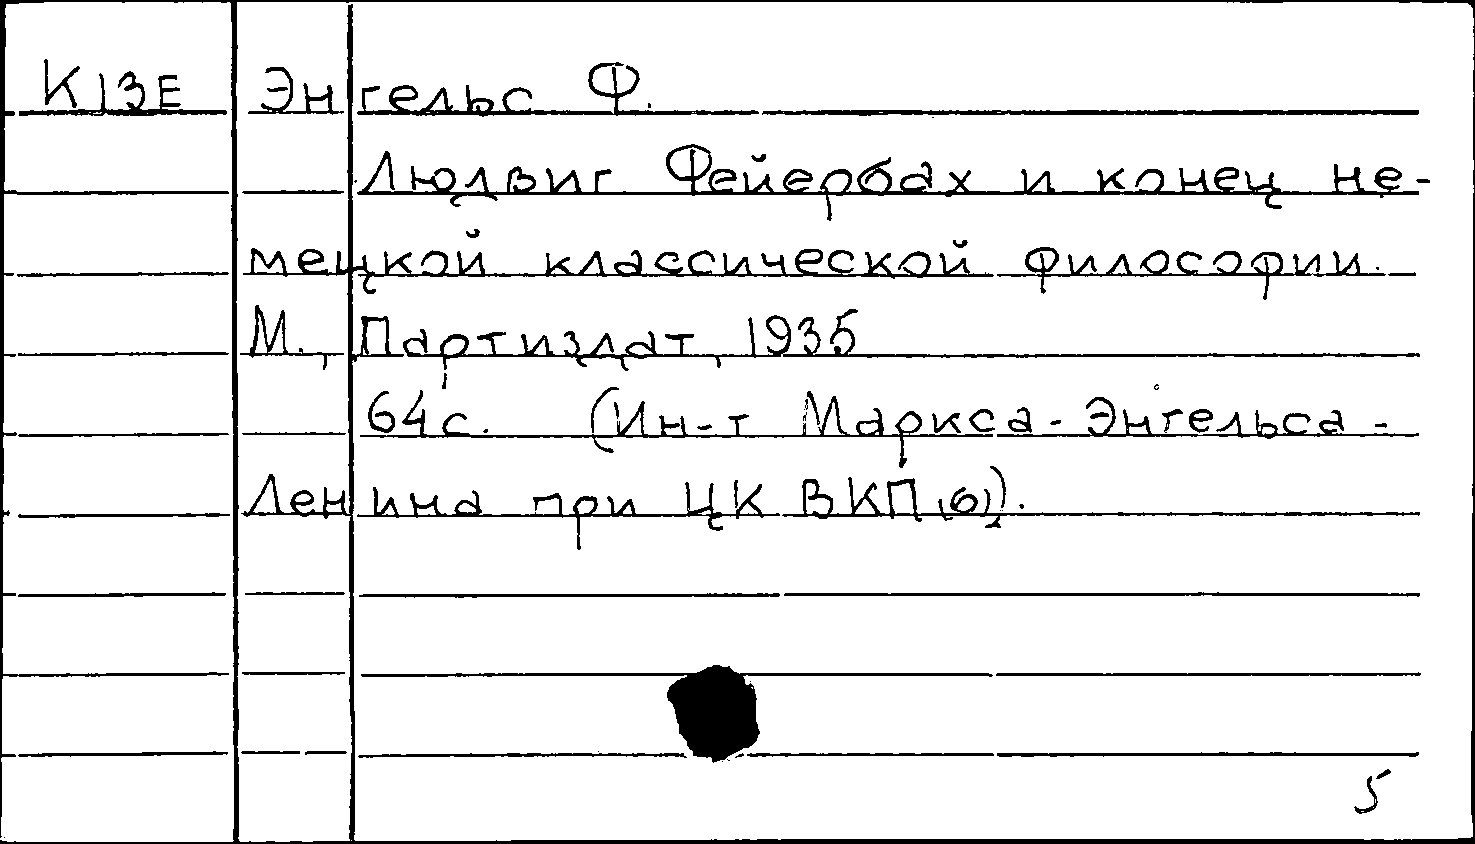 К13Е Энгельс Ф.
Людвиг Фейербах и конец не-
мецкой классической философии.
М., Партиздат, 1935
64с. (Ин-т Маркса-Энгельса-
Ленина при ЦК ВКП(б)).
5